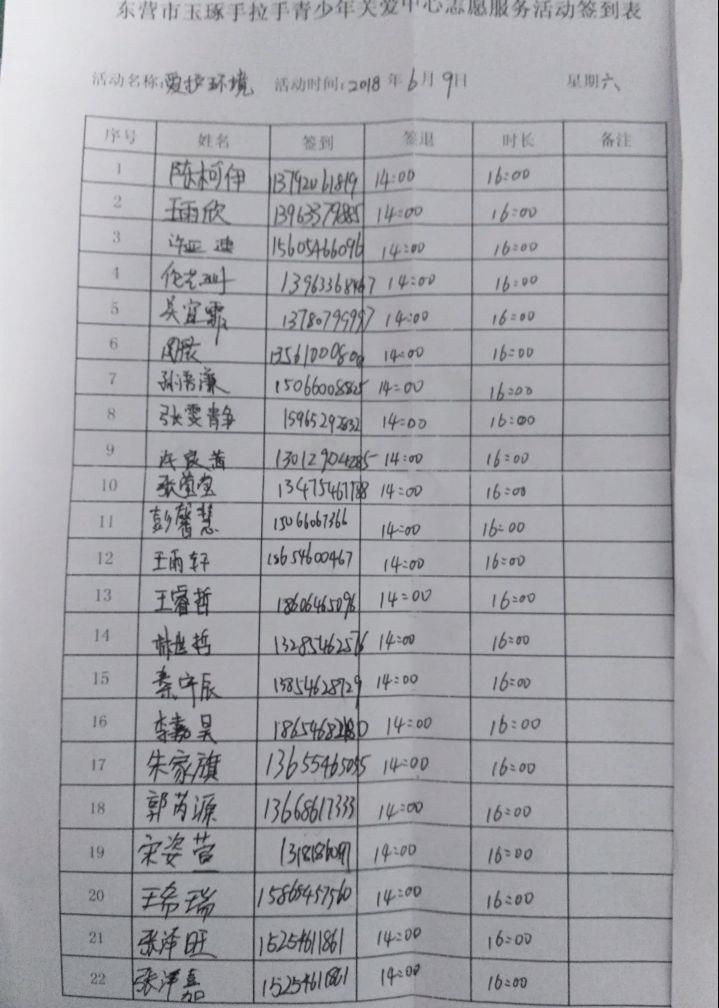 东营市玉琢手拉手青少年关爱中心志愿服务活动签到表
活动名称:爱护环境 活动时间:2018年6月9日 星期六
序号 姓名 签到 签退 时长 备注
1 陈柯伊 13792061819 14:00 16:00
2 王雨欣 13963379885 14:00 16:00
3 许亚迪 15605466096 14:00 16:00
4 14:00 16:00
5 吴宜霏 13780799997 14:00 16:00
6 14:00 16:00
7 孙语濂 14:00 16:00
8 张雯静 15965292832 14:00 16:00
9 13012904285 14:00 16:00
10 张萱莹 14:00 16:00
11 彭馨慧 15066067366 14:00 16:00
12 王雨轩 14:00 16:00
13 王睿哲 18606465096 14:00 16:00
14 13285462576 14:00 16:00
15 秦宇辰 13854628929 14:00 16:00
16 李嘉昊 14:00 16:00
17 朱家旗 14:00 16:00
18 郭芮源 13668617333 14:00 16:00
19 宋姿萱 14:00 16:00
20 王希瑞 15865457560 14:00 16:00
21 张泽旺 15254611861 14:00 16:00
22 张泽嘉 15254611861 14:00 16:00